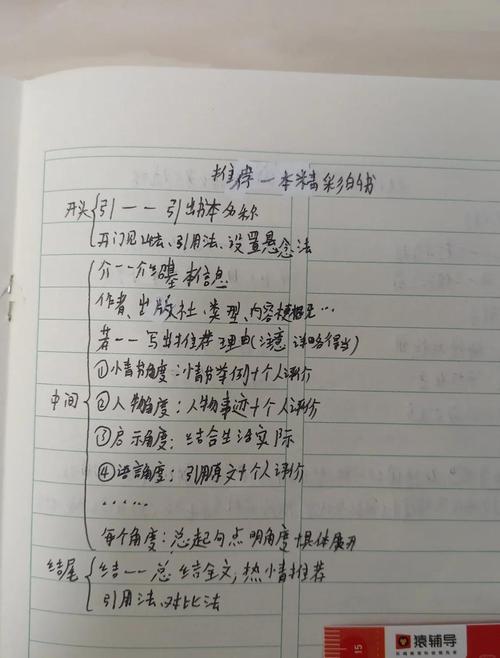 推荐一本精彩的书
开头 引——引出书本名称
开门见山法、引用法、设置悬念法
介——介绍基本信息
作者、出版社、类型、内容梗概…
荐——写出推荐理由(注意详略得当)
①情节角度：情节举例+个人评价
中间 ②人物角度：人物事迹+个人评价
③启示角度：结合生活实际
④语言角度：引用原文+个人评价
……
每个角度：总起句点明角度+具体展开
结尾 结——总结全文，热情推荐
引用法、对比法
15 猿辅导